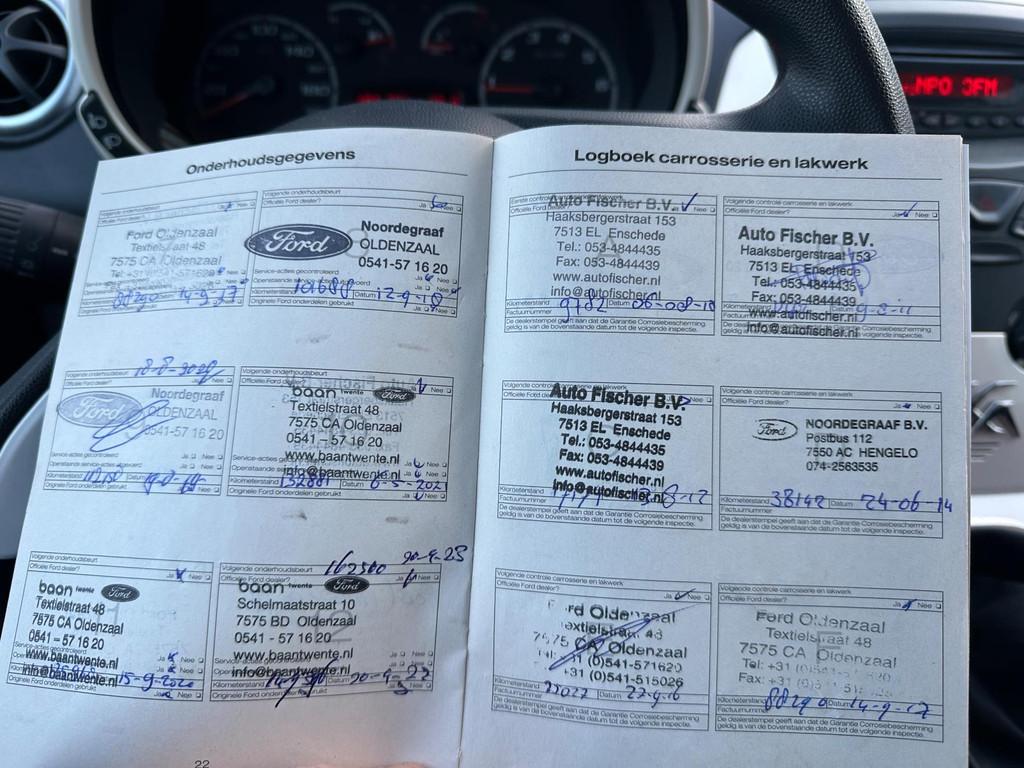 MPO 3FM
Onderhoudsgegevens
Volgende onderhoudsbeurt
Officiële Ford dealer? Ja Nee
Ford Oldenzaal
Textielstraat 48
7575 CA Oldenzaal
Tel: +31 (0)541-571620
88290 14-9-17
Volgende onderhoudsbeurt
Officiële Ford dealer? Ja Nee
Ford
Noordegraaf
OLDENZAAL
0541-57 16 20
Service-acties gecontroleerd Ja Nee
Operationele
Kilometerstand Datum 12-9-18
Originele Ford onderdelen gebruikt Ja Nee
Volgende onderhoudsbeurt
Officiële Ford dealer? Ja Nee
Ford
Noordegraaf
OLDENZAAL
0541-57 16 20
Service-acties gecontroleerd Ja Nee
Kilometerstand Datum
Originele Ford onderdelen gebruikt Ja Nee
Volgende onderhoudsbeurt
Officiële Ford dealer?
baan twente Ford
Textielstraat 48
7575 CA Oldenzaal
0541 – 57 16 20
www.baantwente.nl
info@baantwente.nl
Kilometerstand 132881 Datum
Originele Ford onderdelen gebruikt
Volgende onderhoudsbeurt
Officiële Ford dealer? Ja Nee
baan twente Ford
Textielstraat 48
7575 CA Oldenzaal
0541 – 57 16 20
www.baantwente.nl
info@baantwente.nl
15-9-2020
Originele Ford onderdelen gebruikt
162500 20-9-23
Volgende onderhoudsbeurt
Officiële Ford dealer? Ja Nee
baan twente Ford
Schelmaatstraat 10
7575 BD Oldenzaal
0541 - 57 16 20
www.baantwente.nl
info@baantwente.nl
Datum 20-9-22
Originele Ford onderdelen gebruikt
22
Logboek carrosserie en lakwerk
Auto Fischer B.V.
Haaksbergerstraat 153
7513 EL Enschede
Tel.: 053-4844435
Fax: 053-4844439
www.autofischer.nl
info@autofischer.nl
Kilometerstand 9782 Datum 06-008-10
Factuurnummer
De dealerstempel geeft aan dat de Garantie Corrosiebescherming
geldig is van de bovenstaande datum tot de volgende inspectie.
Volgende controle carrosserie en lakwerk
Officiële Ford dealer? Ja Nee
Auto Fischer B.V.
Haaksbergerstraat 153
7513 EL Enschede
Tel.: 053-4844435
Fax: 053-4844439
www.autofischer.nl
info@autofischer.nl
Volgende controle carrosserie en lakwerk
Officiële Ford dealer?
Auto Fischer B.V.
Haaksbergerstraat 153
7513 EL Enschede
Tel.: 053-4844435
Fax: 053-4844439
www.autofischer.nl
info@autofischer.nl
Kilometerstand
Factuurnummer
De dealerstempel geeft aan dat de Garantie Corrosiebescherming
geldig is van de bovenstaande datum tot de volgende inspectie.
Volgende controle carrosserie en lakwerk
Officiële Ford dealer? Ja Nee
Ford
NOORDEGRAAF B.V.
Postbus 112
7550 AC HENGELO
074-2563535
Kilometerstand 38142 Datum 24-06-14
Factuurnummer
De dealerstempel geeft aan dat de Garantie Corrosiebescherming
geldig is van de bovenstaande datum tot de volgende inspectie.
Volgende controle carrosserie en lakwerk
Officiële Ford dealer? Ja Nee
Oldenzaal
7575 CA Oldenzaal
+31 (0)541-571620
+31 (0)541-515026
Kilometerstand Datum 27-9-16
Factuurnummer
De dealerstempel geeft aan dat de Garantie Corrosiebescherming
geldig is van de bovenstaande datum tot de volgende inspectie.
Volgende controle carrosserie en lakwerk
Officiële Ford dealer? Ja Nee
Ford Oldenzaal
Textielstraat 48
7575 CA Oldenzaal
Kilometerstand 88290 Datum 14-9-17
Factuurnummer
De dealerstempel geeft aan dat de Garantie Corrosiebescherming
geldig is van de bovenstaande datum tot de volgende inspectie.